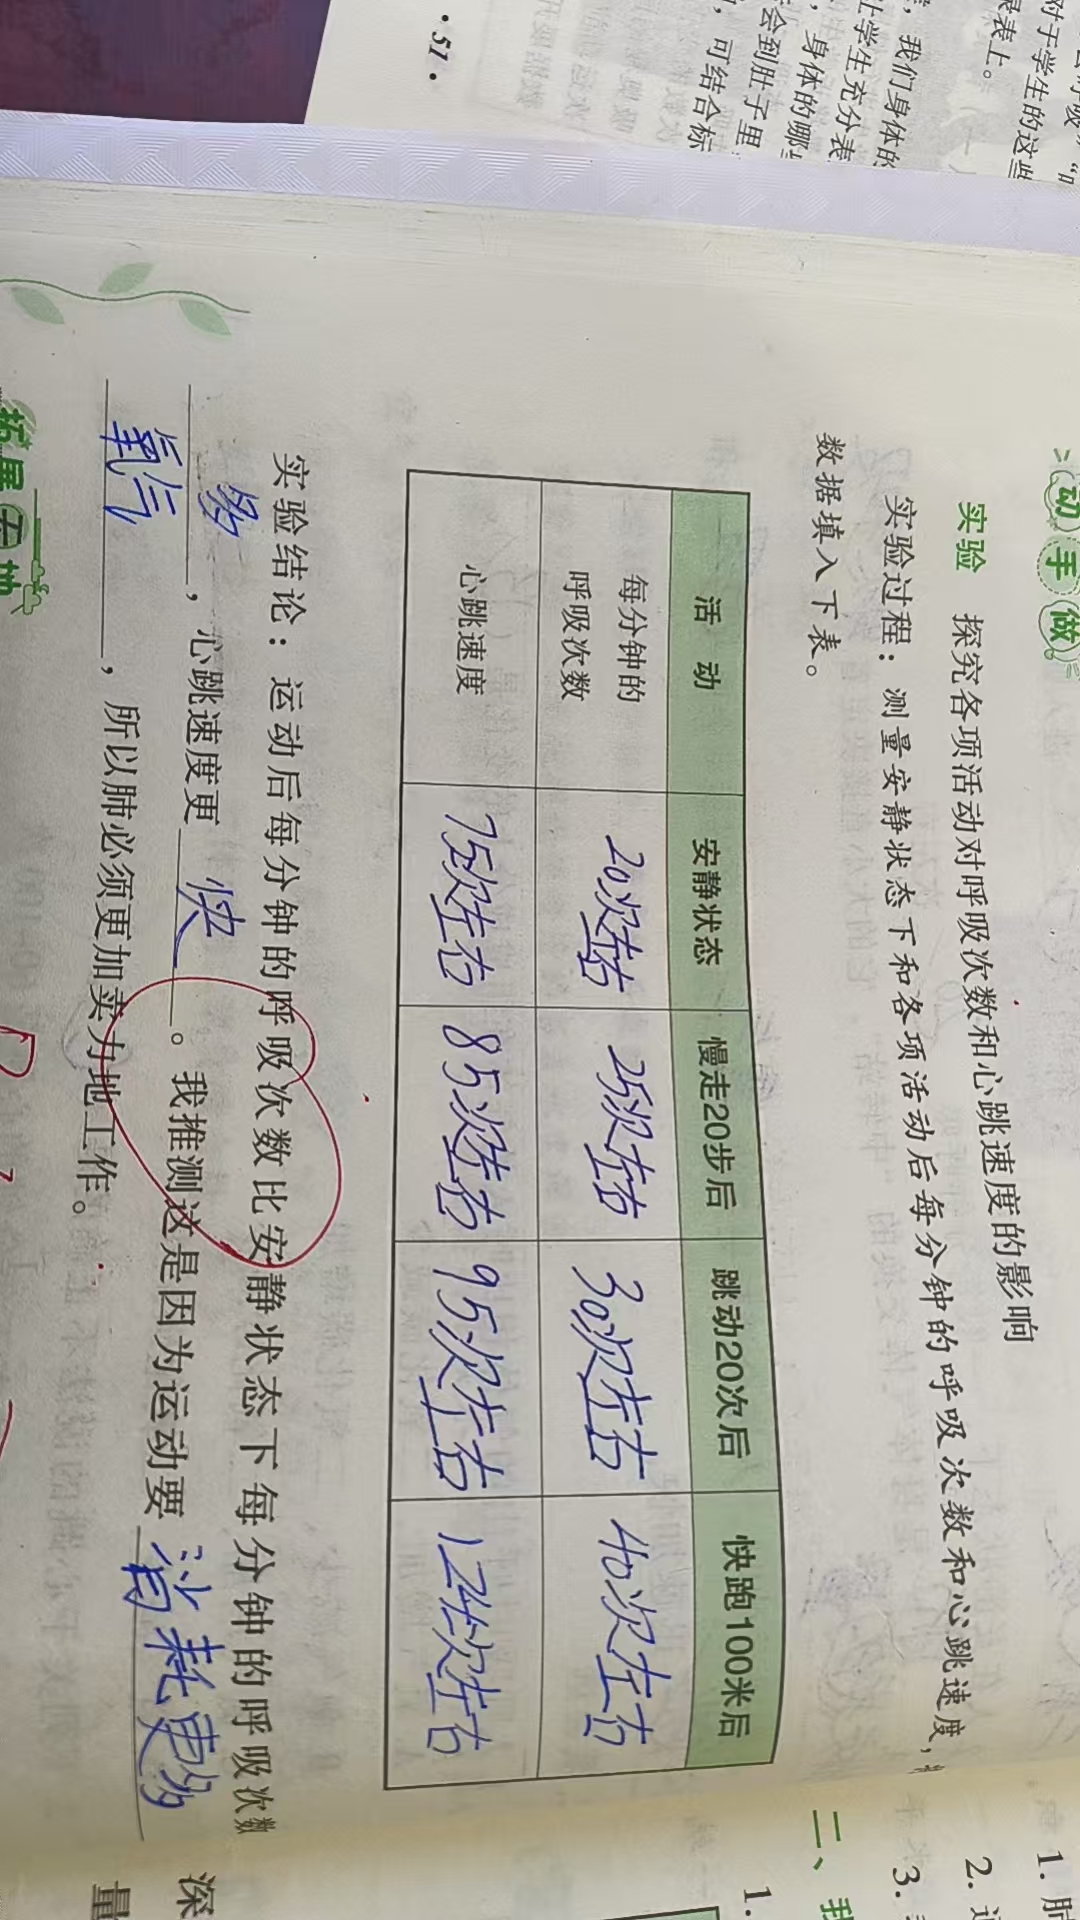 动手做
实验 探究各项活动对呼吸次数和心跳速度的影响
实验过程：测量安静状态下和各项活动后每分钟的呼吸次数和心跳速度，
数据填入下表。
活 动 安静状态 慢走20步后 跳动20次后 快跑100米后
每分钟的呼吸次数 20次左右 25次左右 30次左右 40次左右
心跳速度 75次左右 85次左右 95次左右 次左右
实验结论：运动后每分钟的呼吸次数比安静状态下每分钟的呼吸次数
多，心跳速度更快。我推测这是因为运动要消耗更多
氧气，所以肺必须更加卖力地工作。
拓展天地
·51·
对于学生的这些
表上。
，我们身体的
让学生充分表
，身体的哪
会到肚子里
，可结合标
1.
2.
3.
二、我
1.
深
量